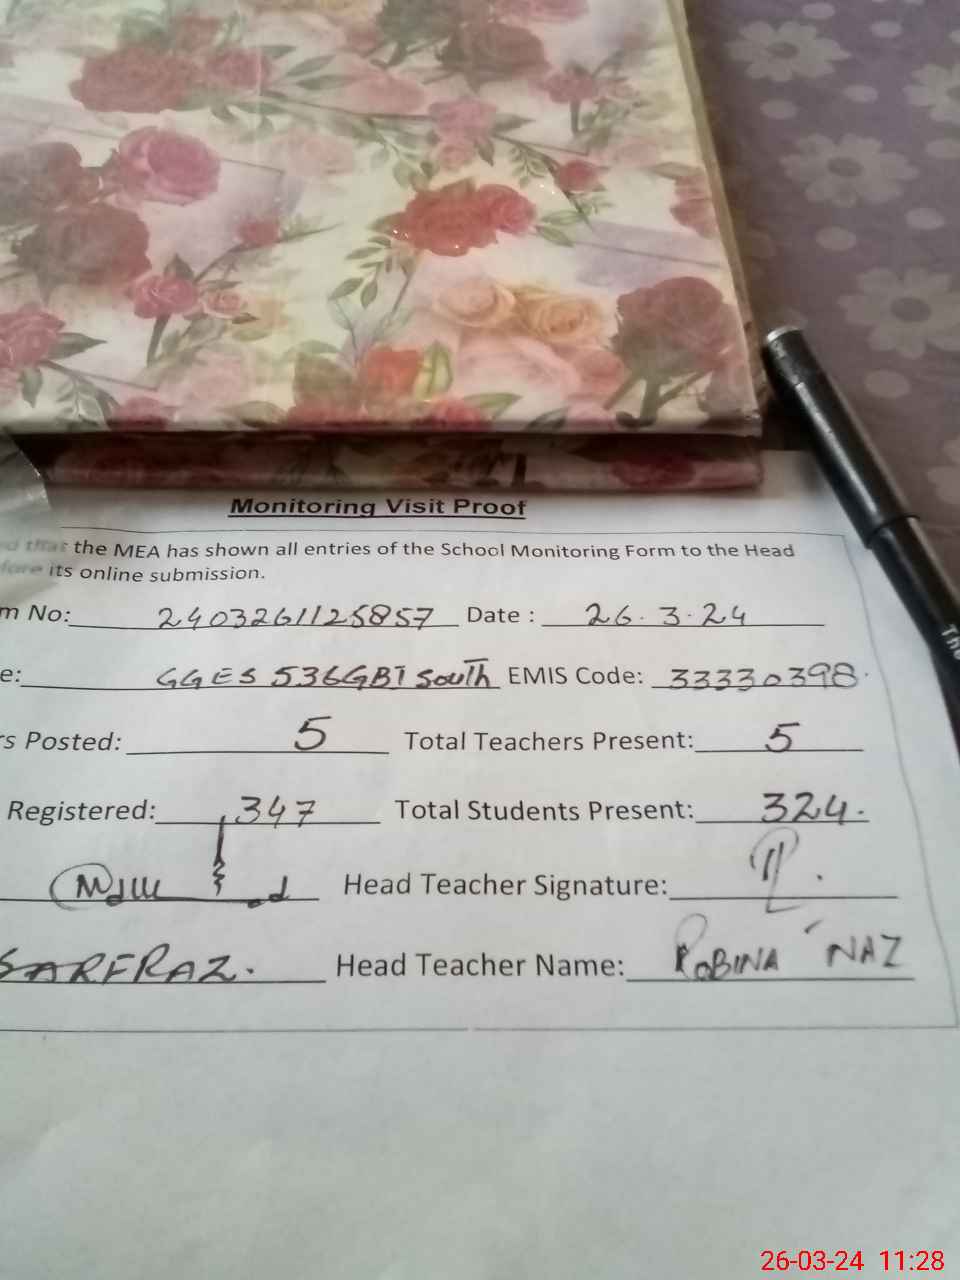 Monitoring Visit Proof
that the MEA has shown all entries of the School Monitoring Form to the Head
its online submission.
m No: 2403261125857 Date : 26.3.24
e: GGES 536GBI South EMIS Code: 33330398
rs Posted: 5 Total Teachers Present: 5
Registered: 347 Total Students Present: 324.
Head Teacher Signature:
SARFRAZ. Head Teacher Name: ROBINA NAZ
26-03-24 11:28